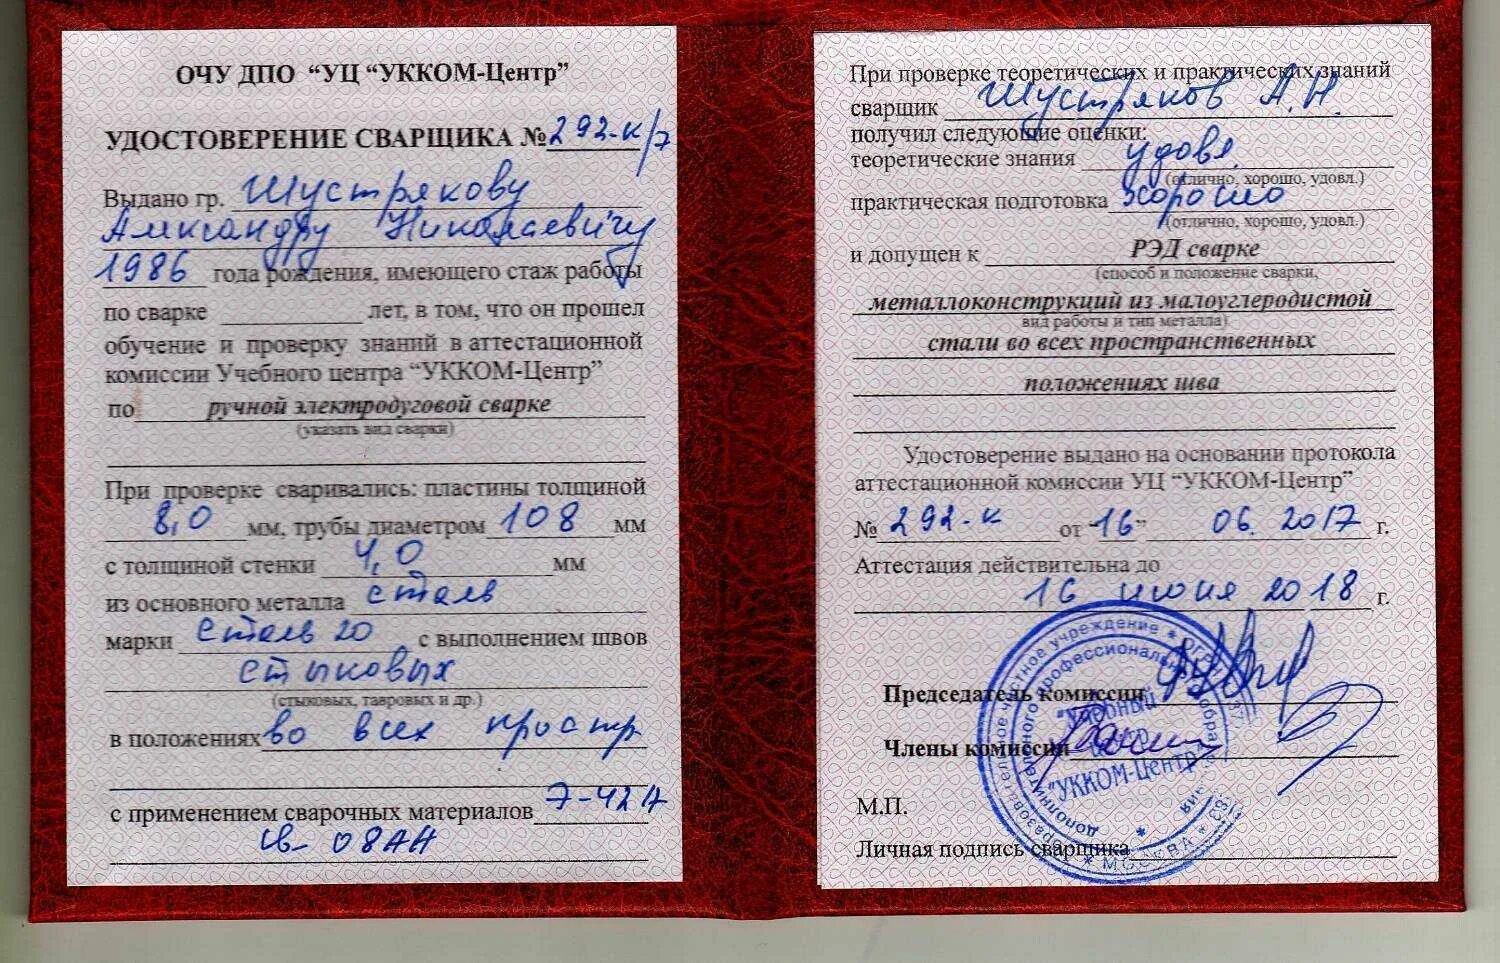 ОЧУ ДПО “УЦ “УККОМ-Центр”
УДОСТОВЕРЕНИЕ СВАРЩИКА № 292-к/7
Выдано гр. Шустрякову
Александру Николаевичу
1986 года рождения, имеющего стаж работы
по сварке ______ лет, в том, что он прошел
обучение и проверку знаний в аттестационной
комиссии Учебного центра “УККОМ-Центр”
по ручной электродуговой сварке
(указать вид сварки)
При проверке сваривались: пластины толщиной
8,0 мм, трубы диаметром 108 мм
с толщиной стенки 4,0 мм
из основного металла сталь
марки Сталь 20 с выполнением швов
стыковых
(стыковых, тавровых и др.)
в положениях во всех простр.
с применением сварочных материалов Э-42А
Св-08АА
При проверке теоретических и практических знаний
сварщик Шустряков А.Н.
получил следующие оценки:
теоретические знания удовл.
(отлично, хорошо, удовл.)
практическая подготовка хорошо
(отлично, хорошо, удовл.)
и допущен к РЭД сварке
(способ и положение сварки,
металлоконструкций из малоуглеродистой
вид работы и тип металла)
стали во всех пространственных
положениях шва
Удостоверение выдано на основании протокола
аттестационной комиссии УЦ “УККОМ-Центр”
№ 292-к от “16” 06. 2017 г.
Аттестация действительна до
16 июня 2018 г.
Председатель комиссии
Члены комиссии
М.П.
Личная подпись сварщика
образовательное частное учреждение * ОГРН
дополнительного профессионального образования
"Учебный
центр
"УККОМ-Центр"
* МОСКВА *